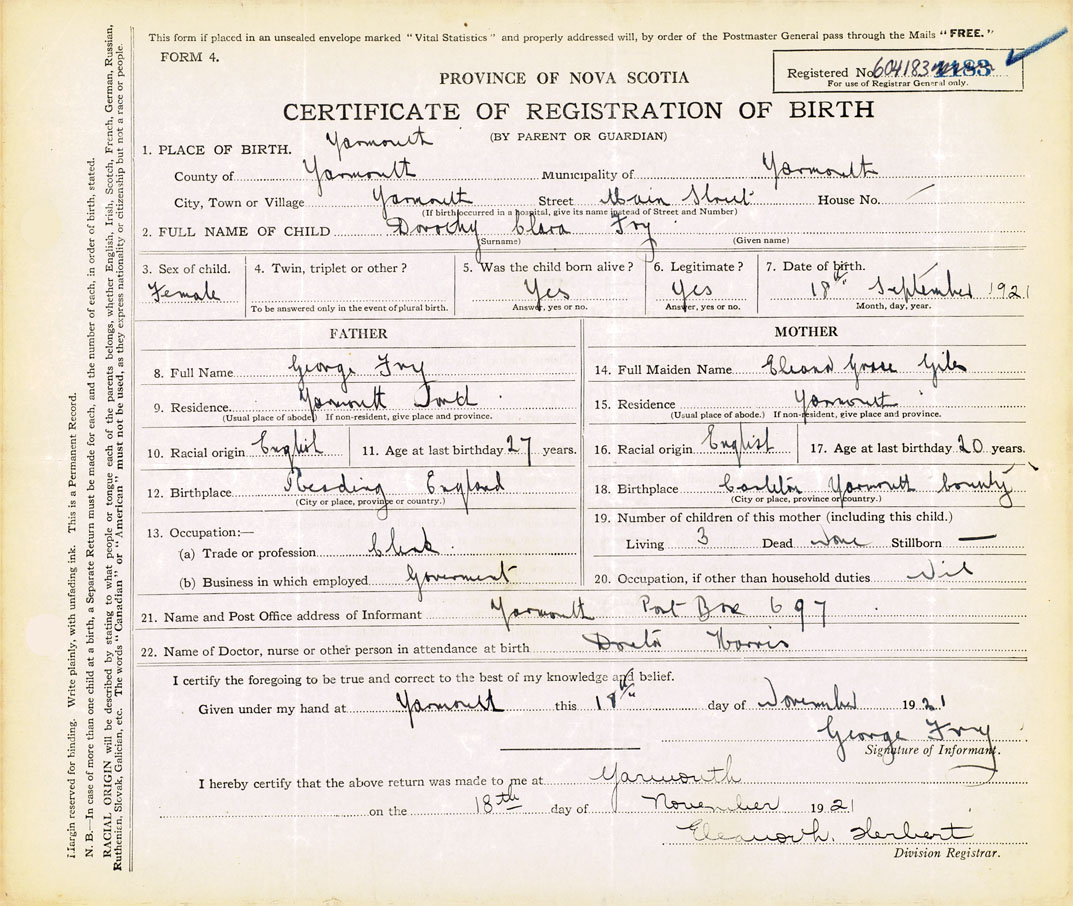 This form if placed in an unsealed envelope marked "Vital Statistics" and properly addressed will, by order of the Postmaster General pass through the Mails "FREE."
FORM 4.
Registered No. 604183 1183
For use of Registrar General only.
PROVINCE OF NOVA SCOTIA
CERTIFICATE OF REGISTRATION OF BIRTH
(BY PARENT OR GUARDIAN)
1. PLACE OF BIRTH. Yarmouth
County of Yarmouth Municipality of Yarmouth
City, Town or Village Yarmouth Street Main Street House No.
(If birth occurred in a hospital, give its name instead of Street and Number)
2. FULL NAME OF CHILD Dorothy Clara Fry
(Surname) (Given name)
3. Sex of child. Female
4. Twin, triplet or other?
To be answered only in the event of plural birth.
5. Was the child born alive? Yes
Answer, yes or no.
6. Legitimate? Yes
Answer, yes or no.
7. Date of birth. 18th September 1921
Month, day, year.
FATHER
8. Full Name George Fry
9. Residence. Yarmouth
(Usual place of abode.) If non-resident, give place and province.
10. Racial origin English 11. Age at last birthday 27 years.
12. Birthplace Reading England
(City or place, province or country.)
13. Occupation:—
(a) Trade or profession Clerk
(b) Business in which employed Goverment
MOTHER
14. Full Maiden Name Giles
15. Residence Yarmouth
(Usual place of abode.) If non-resident, give place and province.
16. Racial origin English 17. Age at last birthday 20 years.
18. Birthplace Carleton Yarmouth County
(City or place, province or country.)
19. Number of children of this mother (including this child.)
Living 3 Dead None Stillborn —
20. Occupation, if other than household duties Nil
21. Name and Post Office address of Informant Yarmouth Post Box 697
22. Name of Doctor, nurse or other person in attendance at birth Doctor Harris
I certify the foregoing to be true and correct to the best of my knowledge and belief.
Given under my hand at Yarmouth this 18th day of November 1921
George Fry
Signature of Informant.
I hereby certify that the above return was made to me at Yarmouth
on the 18th day of November 1921
Eleanor h. Herbert
Division Registrar.
Margin reserved for binding. Write plainly, with unfading ink. This is a Permanent Record.
N. B.—In case of more than one child at a birth, a Separate Return must be made for each, and the number of each, in order of birth, stated.
RACIAL ORIGIN will be described by stating to what people or tongue each of the parents belongs, whether English, Irish, Scotch, French, German, Russian,
Ruthenian, Slovak, Galician, etc. The words "Canadian" or "American" must not be used, as they express nationality or citizenship but not a race or people.